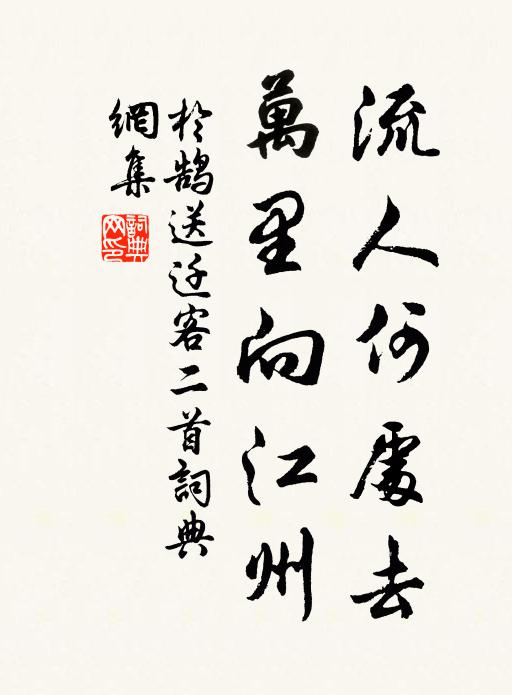 流人何處去
萬里向江州
於鹄送迁客二首詞典
網集
詞典
网印